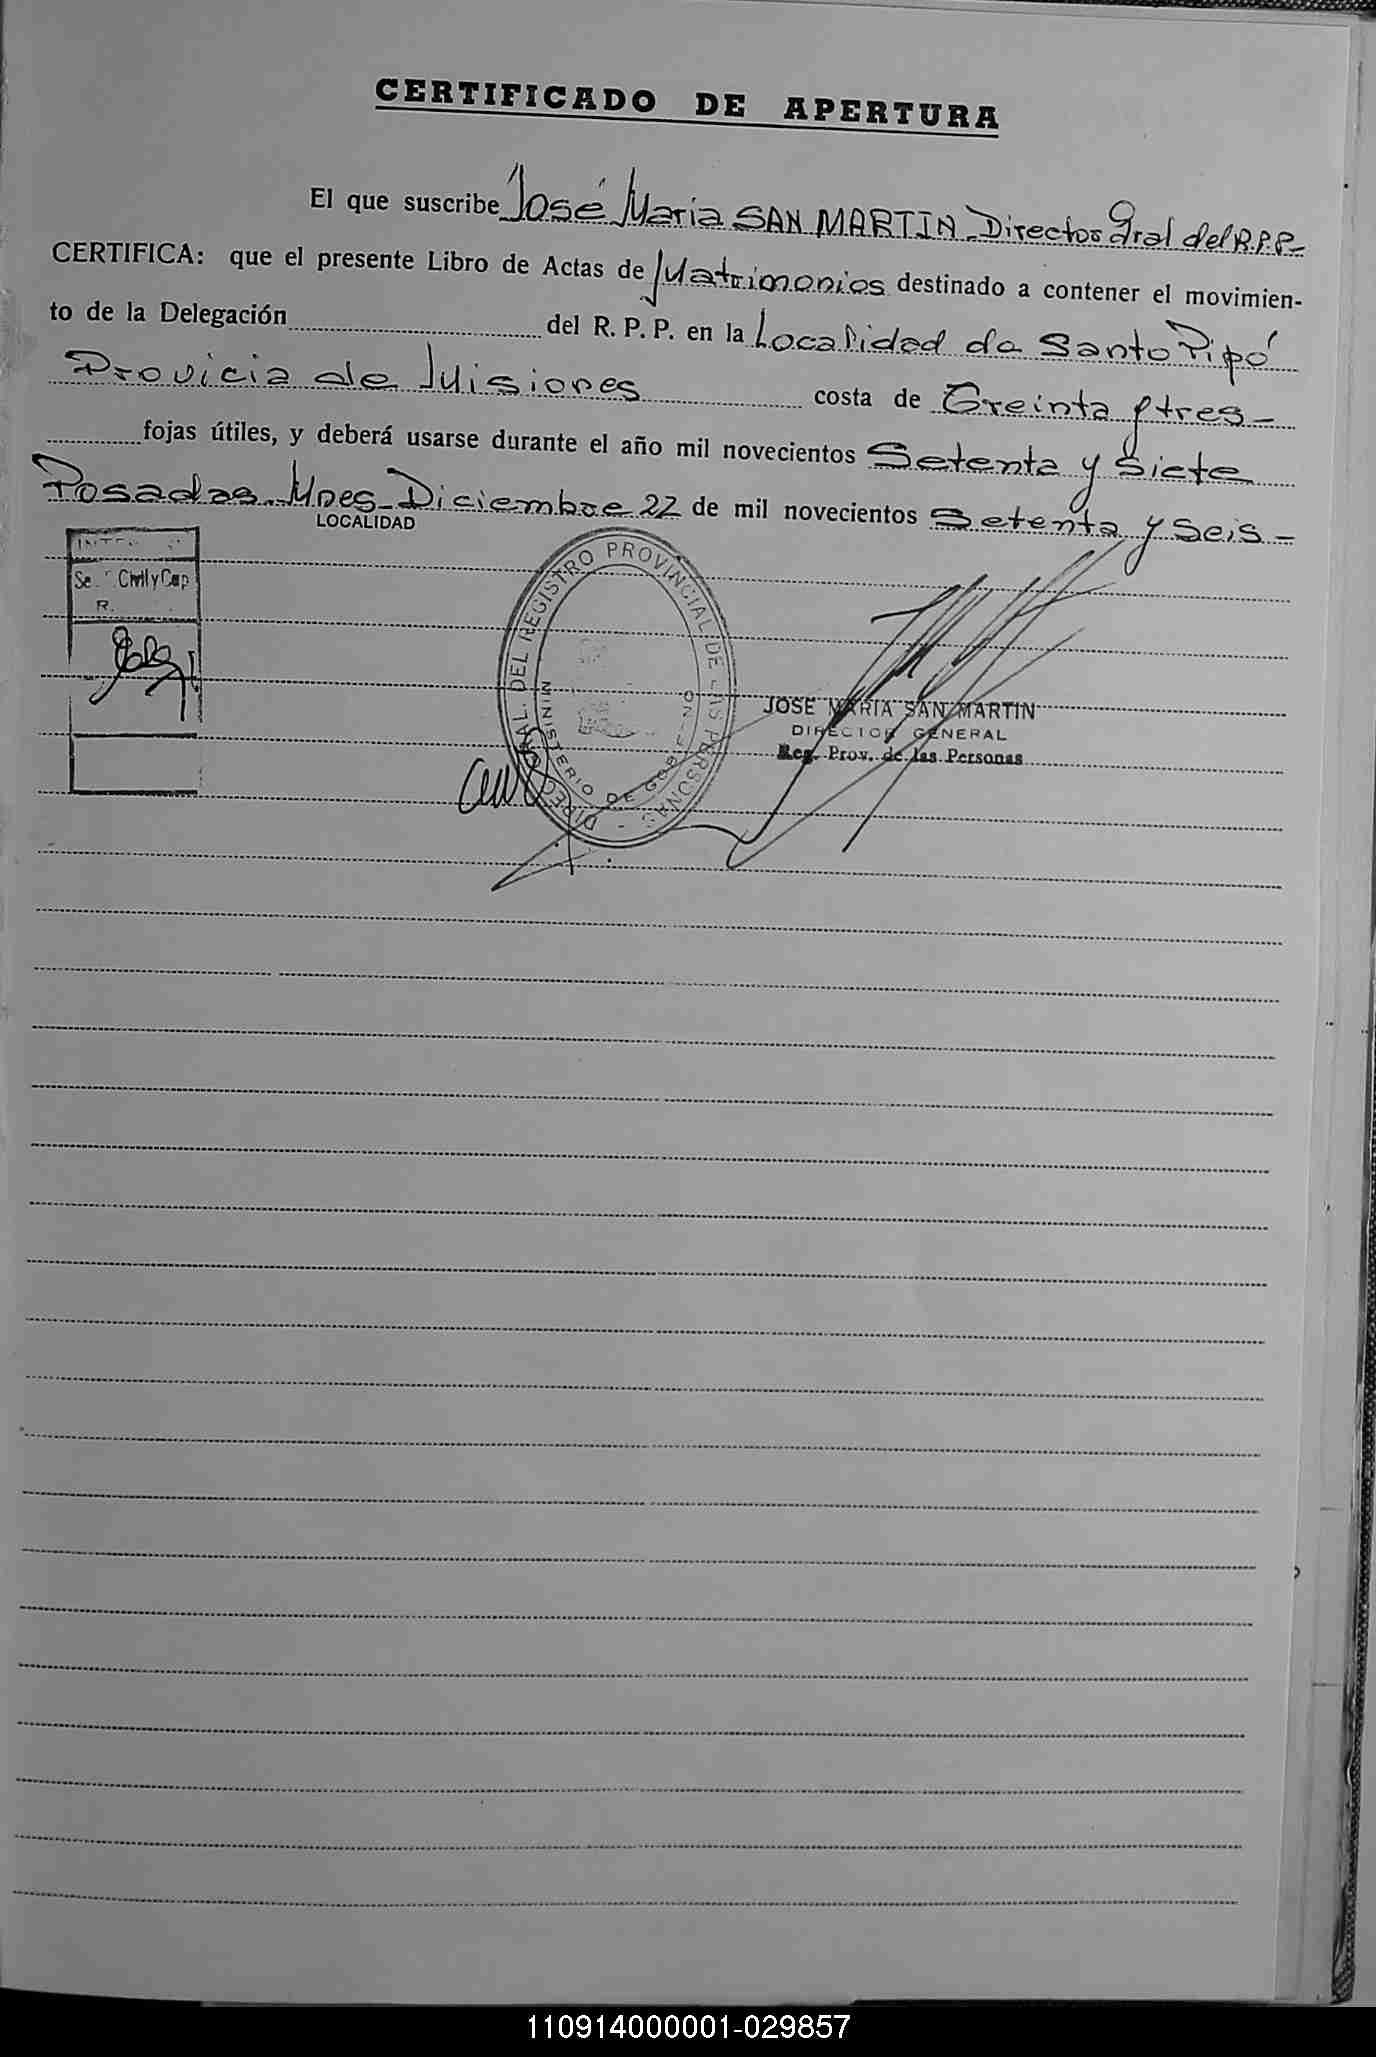 CERTIFICADO DE APERTURA
El que suscribe José María SAN MARTIN Director Gral del R.P.P.-
CERTIFICA: que el presente Libro de Actas de Matrimonios destinado a contener el movimien-
to de la Delegación del R. P. P. en la Localidad de Santo Pipó
Provicia de Misiones costa de Treinta y tres-
fojas útiles, y deberá usarse durante el año mil novecientos Setenta y Siete
Posadas Mnes- Diciembre 22 de mil novecientos Setenta y Seis-
LOCALIDAD
Civil y Cap
R.
DIREC GRAL. DEL REGISTRO PROVINCIAL DE LAS PERSONAS -
MINISTERIO DE GOBIERNO
JOSE MARIA SAN MARTIN
DIRECTOR GENERAL
Reg. Prov. de las Personas
110914000001-029857